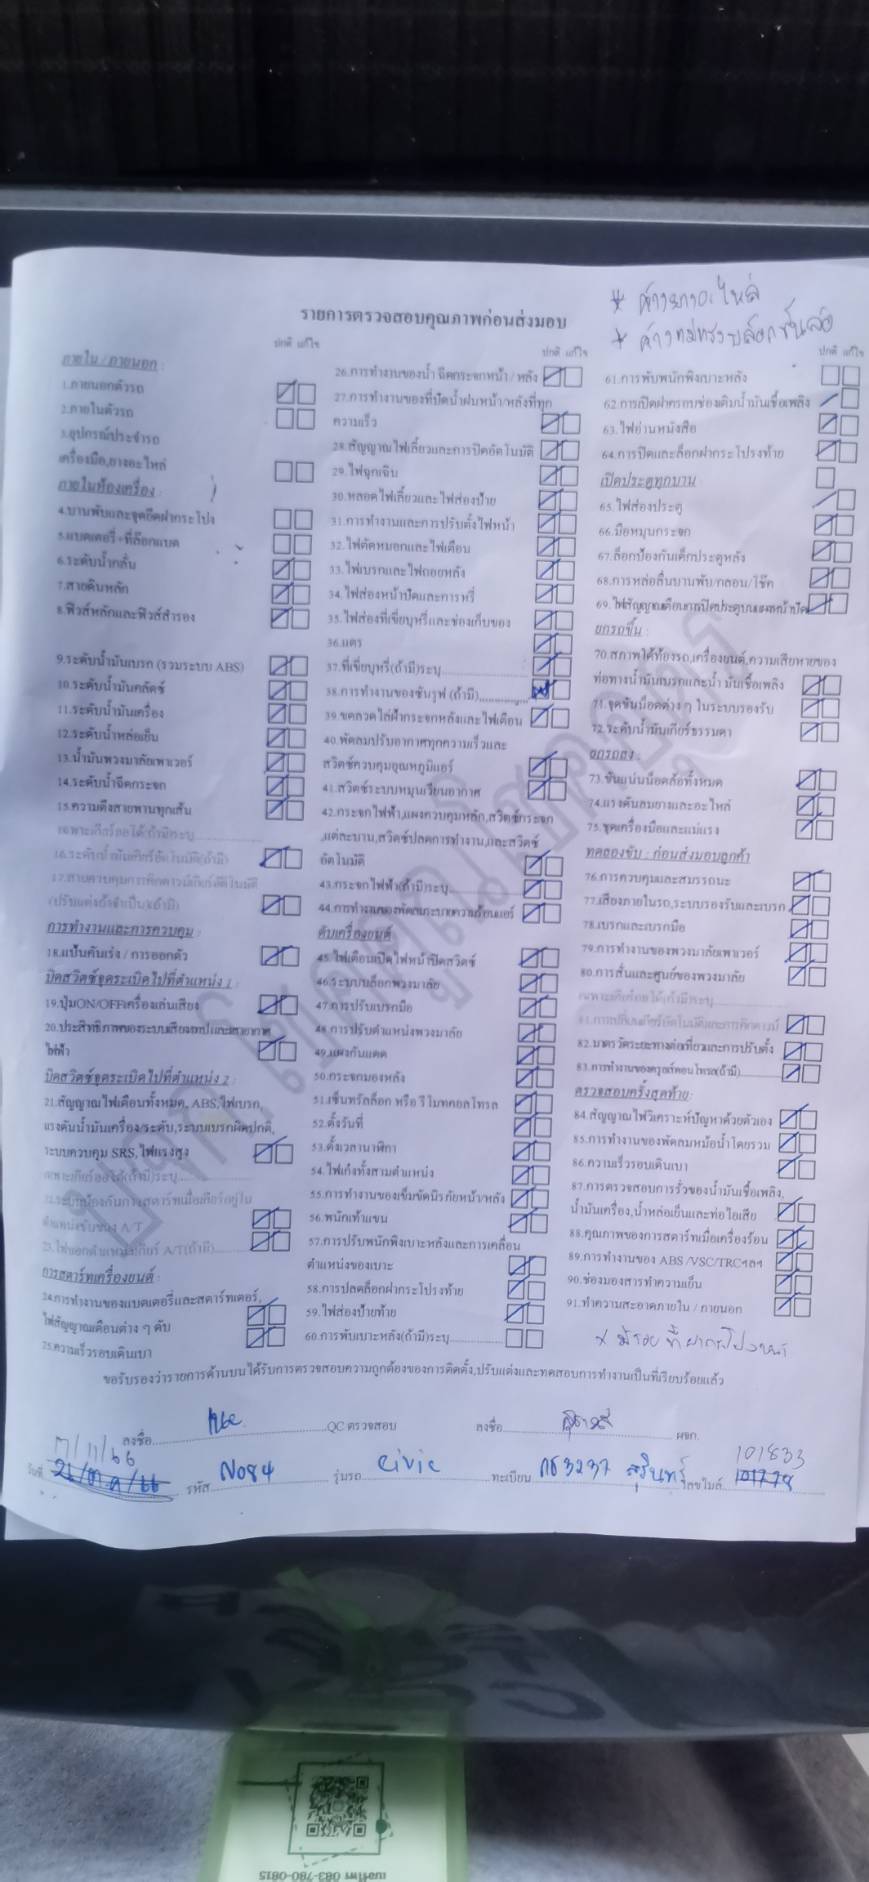 รายการตรวจสอบคุณภาพก่อนส่งมอบ
ปกติ แก้ไข
ภายใน / ภายนอก :
1.ภายนอกตัวรถ
2.ภายในตัวรถ
3.อุปกรณ์ประจำรถ
เครื่องมือ,ยางอะไหล่
ภายในห้องเครื่อง :
4.บานพับและจุดยึดฝากระโปรง
5.แบตเตอรี่+ที่ล็อกแบต
6.ระดับน้ำกลั่น
7.สายดินหลัก
8.ฟิวส์หลักและฟิวส์สำรอง
9.ระดับน้ำมันเบรก (รวมระบบ ABS)
10.ระดับน้ำมันคลัตช์
11.ระดับน้ำมันเครื่อง
12.ระดับน้ำหล่อเย็น
13.น้ำมันพวงมาลัยเพาเวอร์
14.ระดับน้ำฉีดกระจก
15.ความตึงสายพานทุกเส้น
เฉพาะเกียร์ออโต้(ถ้ามี)ระบุ
16.ระดับน้ำมันเกียร์อัตโนมัติ(ถ้ามี)
17.สายควบคุมการคิกดาวน์เกียร์อัตโนมัติ
(ปรับแต่งถ้าจำเป็น)(ถ้ามี)
การทำงานและการควบคุม :
18.แป้นคันเร่ง / การออกตัว
บิดสวิตช์จุดระเบิดไปที่ตำแหน่ง 1 :
19.ปุ่มON/OFFเครื่องเล่นเสียง
20.ประสิทธิภาพของระบบเสียงเทปและเสาอากาศ
ไฟฟ้า
บิดสวิตช์จุดระเบิดไปที่ตำแหน่ง 2 :
21.สัญญาณไฟเตือนทั้งหมด, ABS,ไฟเบรก,
แรงดันน้ำมันเครื่อง/ระดับ,ระบบเบรกผิดปกติ,
ระบบควบคุม SRS, ไฟแรงสูง
เฉพาะเกียร์ออโต้(ถ้ามี)ระบุ
22.ระบบป้องกันการสตาร์ทเมื่อเกียร์อยู่ใน
ตำแหน่งขับของ A/T
23.ไฟบอกตำแหน่งเกียร์ A/T(ถ้ามี)
การสตาร์ทเครื่องยนต์ :
24.การทำงานของแบตเตอรี่และสตาร์ทเตอร์,
ไฟสัญญาณเตือนต่าง ๆ ดับ
25.ความเร็วรอบเดินเบา
ปกติ แก้ไข
26.การทำงานของน้ำฉีดกระจกหน้า / หลัง
27.การทำงานของที่ปัดน้ำฝนหน้า/หลังที่ทุก
ความเร็ว
28.สัญญาณไฟเลี้ยวและการปิดอัตโนมัติ
29.ไฟฉุกเฉิน
30.หลอดไฟเลี้ยวและไฟส่องป้าย
31.การทำงานและการปรับตั้งไฟหน้า
32.ไฟตัดหมอกและไฟเตือน
33.ไฟเบรกและไฟถอยหลัง
34.ไฟส่องหน้าปัดและการหรี่
35.ไฟส่องที่เขี่ยบุหรี่และช่องเก็บของ
36.แตร
37.ที่เขี่ยบุหรี่(ถ้ามี)ระบุ
38.การทำงานของซันรูฟ (ถ้ามี)
39.ขดลวดไล่ฝ้ากระจกหลังและไฟเตือน
40.พัดลมปรับอากาศทุกความเร็วและ
สวิตช์ควบคุมอุณหภูมิแอร์
41.สวิตช์ระบบหมุนเวียนอากาศ
42.กระจกไฟฟ้า,แผงควบคุมหลัก,สวิตช์กระจก
,แต่ละบาน,สวิตช์ปลดการทำงาน,และสวิตช์
อัตโนมัติ
43.กระจกไฟฟ้า(ถ้ามี)ระบุ
44.การทำงานของพัดลมระบายความร้อนแอร์
ดับเครื่องยนต์
45.ไฟเตือนเปิดไฟหน้า/ปิดสวิตช์
46.ระบบบล็อกพวงมาลัย
47.การปรับเบรกมือ
48.การปรับตำแหน่งพวงมาลัย
49.แผงกันแดด
50.กระจกมองหลัง
51.เซ็นทรัลล็อก หรือ รีโมทคอลโทรล
52.ตั้งวันที่
53.ตั้งเวลานาฬิกา
54.ไฟเก๋งทั้งสามตำแหน่ง
55.การทำงานของเข็มขัดนิรภัยหน้า/หลัง
56.พนักเท้าแขน
57.การปรับพนักพิงเบาะหลังและการเคลื่อน
ตำแหน่งของเบาะ
58.การปลดล็อกฝากระโปรงท้าย
59.ไฟส่องป้ายท้าย
60.การพับเบาะหลัง(ถ้ามี)ระบุ
* ค้างยางอะไหล่
ปกติ แก้ไข
61.การพับพนักพิงเบาะหลัง
62.การเปิดฝาครอบช่องเติมน้ำมันเชื้อเพลิง
63.ไฟอ่านหนังสือ
64.การปิดและล็อกฝากระโปรงท้าย
เปิดประตูทุกบาน
65.ไฟส่องประตู
66.มือหมุนกระจก
67.ล็อกป้องกันเด็กประตูหลัง
68.การหล่อลื่นบานพับ/กลอน/โช๊ค
69.ไฟสัญญาณเตือนการปิดประตูบนแผงหน้าปัด
ยกรถขึ้น :
70.สภาพใต้ท้องรถ,เครื่องยนต์,ความเสียหายของ
ท่อทางน้ำมันเบรกและน้ำมันเชื้อเพลิง
71.จุดขันน็อตต่าง ๆ ในระบบรองรับ
72.ระดับน้ำมันเกียร์ธรรมดา
ยกรถลง :
73.ขันแน่นน็อตล้อทั้งหมด
74.แรงดันลมยางและอะไหล่
75.ชุดเครื่องมือและแม่แรง
ทดลองขับ : ก่อนส่งมอบลูกค้า
76.การควบคุมและสมรรถนะ
77.เสียงภายในรถ,ระบบรองรับและเบรก
78.เบรกและเบรกมือ
79.การทำงานของพวงมาลัยเพาเวอร์
80.การสั่นและศูนย์ของพวงมาลัย
เฉพาะเกียร์ออโต้(ถ้ามี)ระบุ
81.การเปลี่ยนเกียร์อัตโนมัติและการคิกดาวน์
82.มาตรวัดระยะทางต่อเที่ยวและการปรับตั้ง
83.การทำงานของครูสท์คอนโทรล(ถ้ามี)
ตรวจสอบครั้งสุดท้าย:
84.สัญญาณไฟวิเคราะห์ปัญหาด้วยตัวเอง
85.การทำงานของพัดลมหม้อน้ำโดยรวม
86.ความเร็วรอบเดินเบา
87.การตรวจสอบการรั่วของน้ำมันเชื้อเพลิง,
น้ำมันเครื่อง,น้ำหล่อเย็นและท่อไอเสีย
88.คุณภาพของการสตาร์ทเมื่อเครื่องร้อน
89.การทำงานของ ABS /VSC/TRCฯลฯ
90.ช่องมองสารทำความเย็น
91.ทำความสะอาดภายใน / ภายนอก
x มีรอยที่ฝากระโปงหน้า
ขอรับรองว่ารายการด้านบนได้รับการตรวจสอบความถูกต้องของการติดตั้ง,ปรับแต่งและทดสอบการทำงานเป็นที่เรียบร้อยแล้ว
ลงชื่อ QC ตรวจสอบ ลงชื่อ ผจก.
17/11/66 101833
วันที่ รหัส N084 รุ่นรถ civic ทะเบียน กธ3237 สุรินทร์ เลขไมล์
เบอร์โทร 083-780-0815